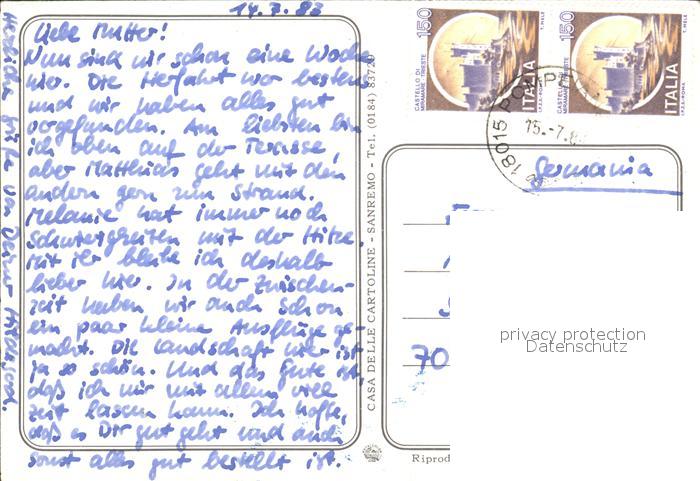 14.7.83
Liebe Mutter!
Nun sind wir schon eine Woche
hier. Die Herfahrt war bestens
und wir haben alles gut
vorgefunden. Am liebsten bin
ich oben auf der Terrasse,
aber Matthias geht mit den
andern gern zum Strand.
Melanie hat immer noch
Schwierigkeiten mit der Hitze.
Mit ihr bleibe ich deshalb
lieber hier. In der Zwischen-
zeit haben wir auch schon
ein paar kleine Ausflüge ge-
macht. Die Landschaft hier ist
ja so schön. Und das Gute ist,
daß ich mir mit allem viel
Zeit lassen kann. Ich hoffe,
daß es Dir gut geht und auch
sonst alles gut bestellt ist.
Herzliche Grüße von Deiner
CASA DELLE CARTOLINE - SANREMO - Tel. (0184) 83720
150
CASTELLO DI
MIRAMARE-TRIESTE
ITALIA
I.P.Z.S.-ROMA
T. MELE
150
CASTELLO DI
MIRAMARE-TRIESTE
ITALIA
I.P.Z.S.-ROMA
T. MELE
18015
15.-7.8
Germania
70
privacy protection
Datenschutz
Riprod